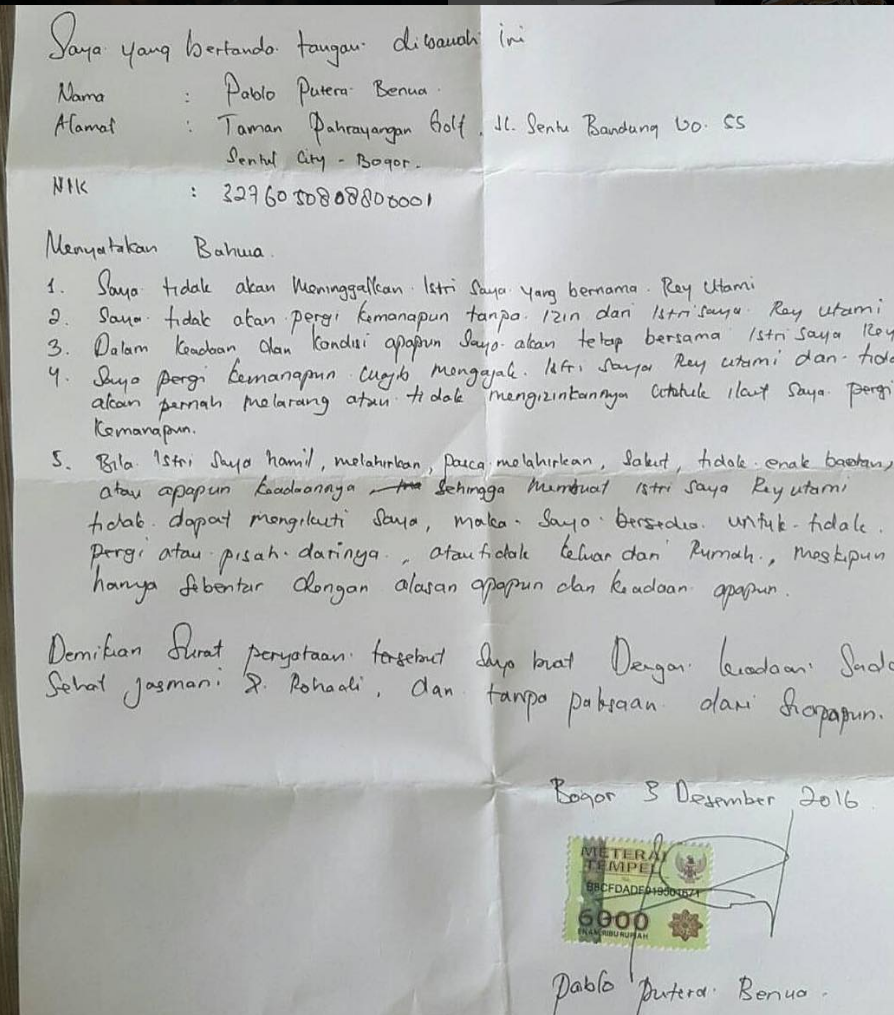 Saya yang bertanda tangan dibawah ini
Nama : Pablo Putera Benua.
Alamat : Taman Pahrayangan Golf, Jl. Sentu Bandung No. 55
Sentul City - Bogor.
NIK : 3276050808800001
Menyatakan Bahwa.
1. Saya tidak akan Meninggalkan Istri Saya yang bernama Rey Utami
2. Saya tidak akan pergi kemanapun tanpa izin dari Istri saya Rey utami
3. Dalam keadaan dan kondisi apapun Saya akan tetap bersama Istri saya Rey
4. Saya pergi kemanapun wajib mengajak Istri saya Rey utami dan tida
akan pernah melarang atau tidak mengizinkannya untuk ikut saya pergi
kemanapun.
5. Bila Istri Saya hamil, melahirkan, pasca melahirkan, Sakit, tidak enak badan,
atau apapun keadaannya Sehingga Membuat istri saya Rey utami
tidak dapat mengikuti saya, maka saya bersedia untuk tidak
pergi atau pisah darinya, atau tidak keluar dari Rumah, meskipun
hanya Sebentar dengan alasan apapun dan keadaan apapun.
Demikian Surat peryataan tersebut Saya buat Dengan keadaan Sada
Sehat jasmani & Rohani, dan tanpa paksaan dari Siapapun.
Bogor 3 Desember 2016
METERAI
TEMPEL
6000
ENAM RIBU RUPIAH
Pablo Putera Benua.